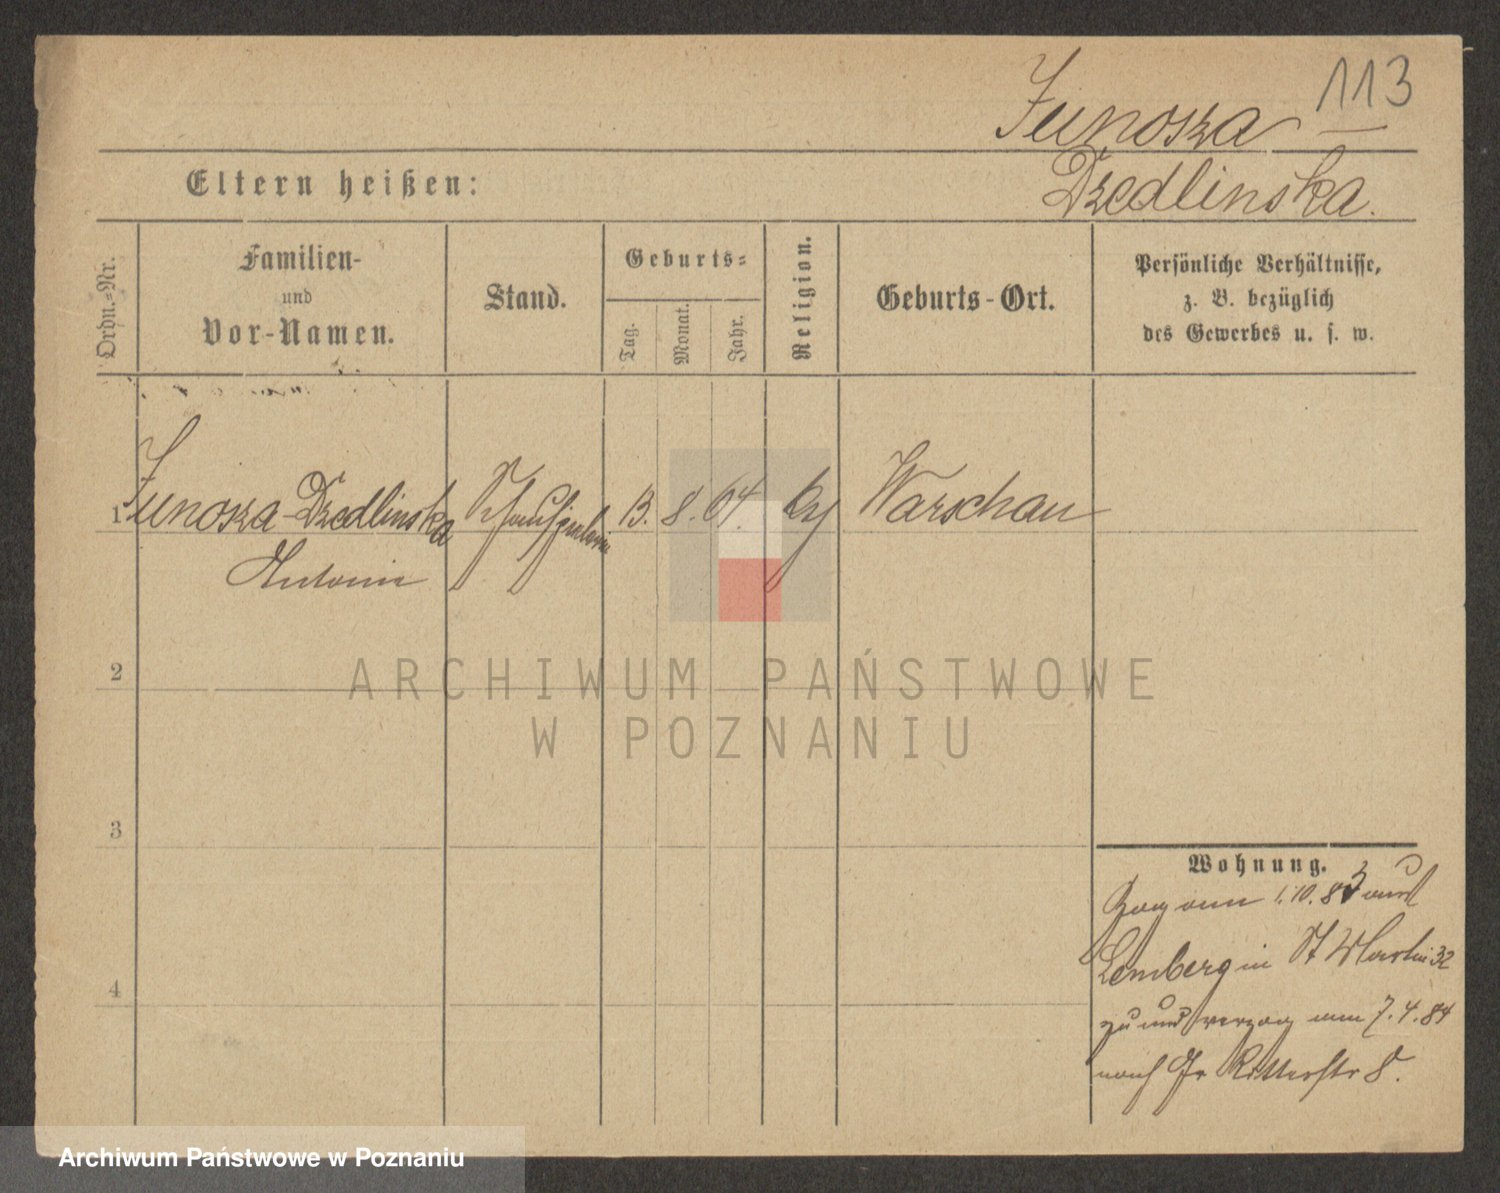 113
Junosza
Dzedlinska.
Eltern heißen:
Ordn.-Nr.
Familien-
und
Vor-Namen.
Stand.
Geburts-
Tag.
Monat.
Jahr.
Religion.
Geburts-Ort.
Persönliche Verhältnisse,
z. B. bezüglich
des Gewerbes u. s. w.
1 Junosza-Dzedlinska Schauspielerin 13. 8. 64. ky Warschau
Antonie
2
ARCHIWUM PAŃSTWOWE
W POZNANIU
3
Wohnung.
Zog am 1.10.83 aus
Lemberg in St Martin 32
zu und verzog am 7.4.84
nach Gr Ritterstr 8.
4
Archiwum Państwowe w Poznaniu